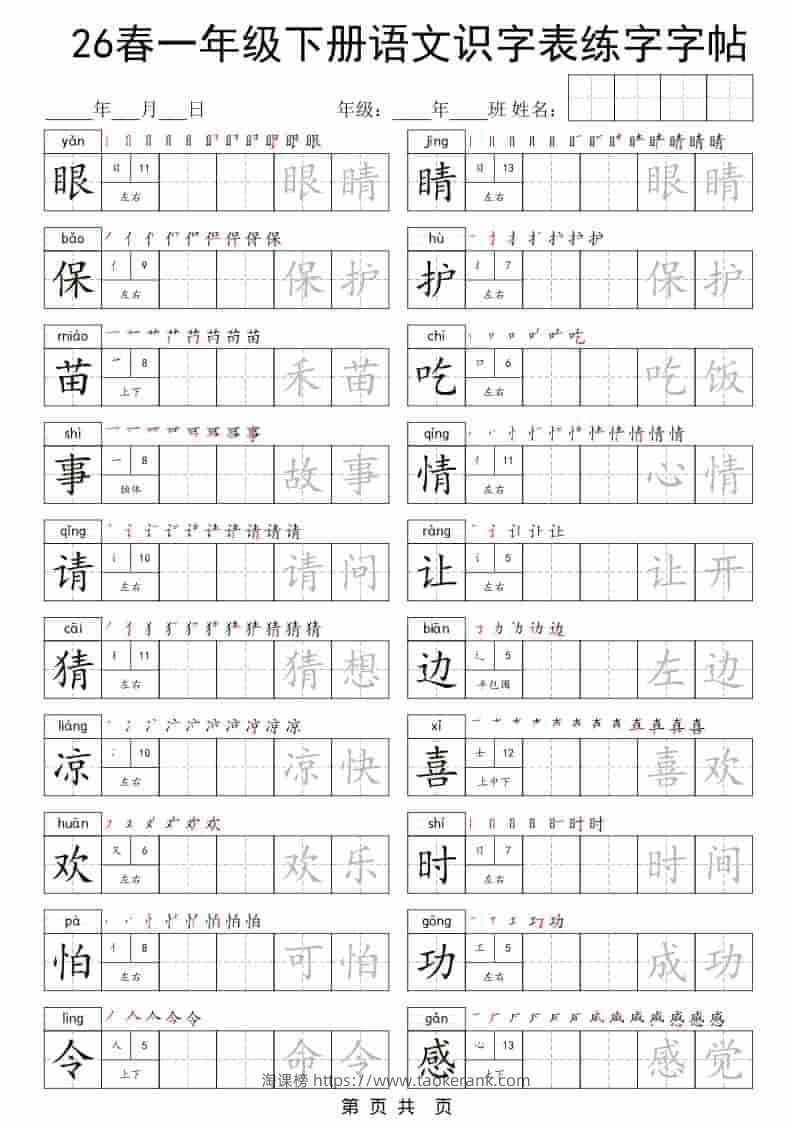 26春一年级下册语文识字表练字字帖
_____年___月___日 年级：____年____班 姓名：
yǎn jīng
眼 目 11 左右 眼 睛 睛 目 13 左右 眼 睛
bǎo hù
保 亻 9 左右 保 护 护 扌 7 左右 保 护
miáo chī
苗 艹 8 上下 禾 苗 吃 口 6 左右 吃 饭
shì qíng
事 一 8 独体 故 事 情 忄 11 左右 心 情
qǐng ràng
请 讠 10 左右 请 问 让 讠 5 左右 让 开
cāi biān
猜 犭 11 左右 猜 想 边 辶 5 半包围 左 边
liáng xǐ
凉 冫 10 左右 凉 快 喜 士 12 上中下 喜 欢
huān shí
欢 又 6 左右 欢 乐 时 日 7 左右 时 间
pà gōng
怕 忄 8 左右 可 怕 功 工 5 左右 成 功
lìng gǎn
令 人 5 上下 命 令 感 心 13 上下 感 觉
淘课榜 https://www.taokerank.com
第 页 共 页